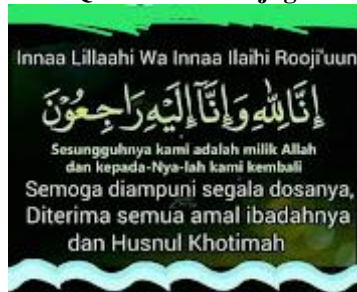 Innaa Lillaahi Wa Innaa Ilaihi Rooji'uun
إِنَّا لِلّٰهِ وَإِنَّآ إِلَيْهِ رَاجِعُوْنَ
Sesungguhnya kami adalah milik Allah
dan kepada-Nya-lah kami kembali
Semoga diampuni segala dosanya,
Diterima semua amal ibadahnya
dan Husnul Khotimah